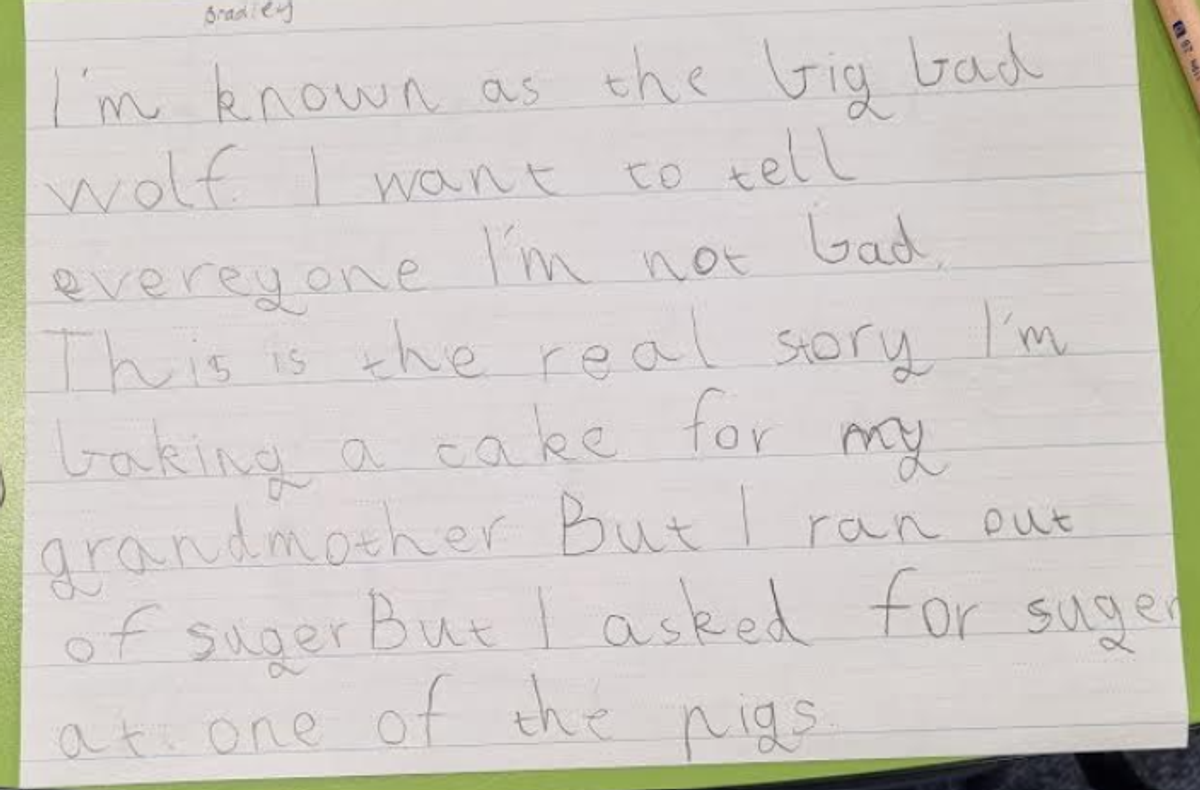 Bradley
I'm known as the big bad
wolf. I want to tell
evereyone I'm not bad.
This is the real story I'm
baking a cake for my
grandmother But I ran out
of suger But I asked for suger
at one of the pigs.